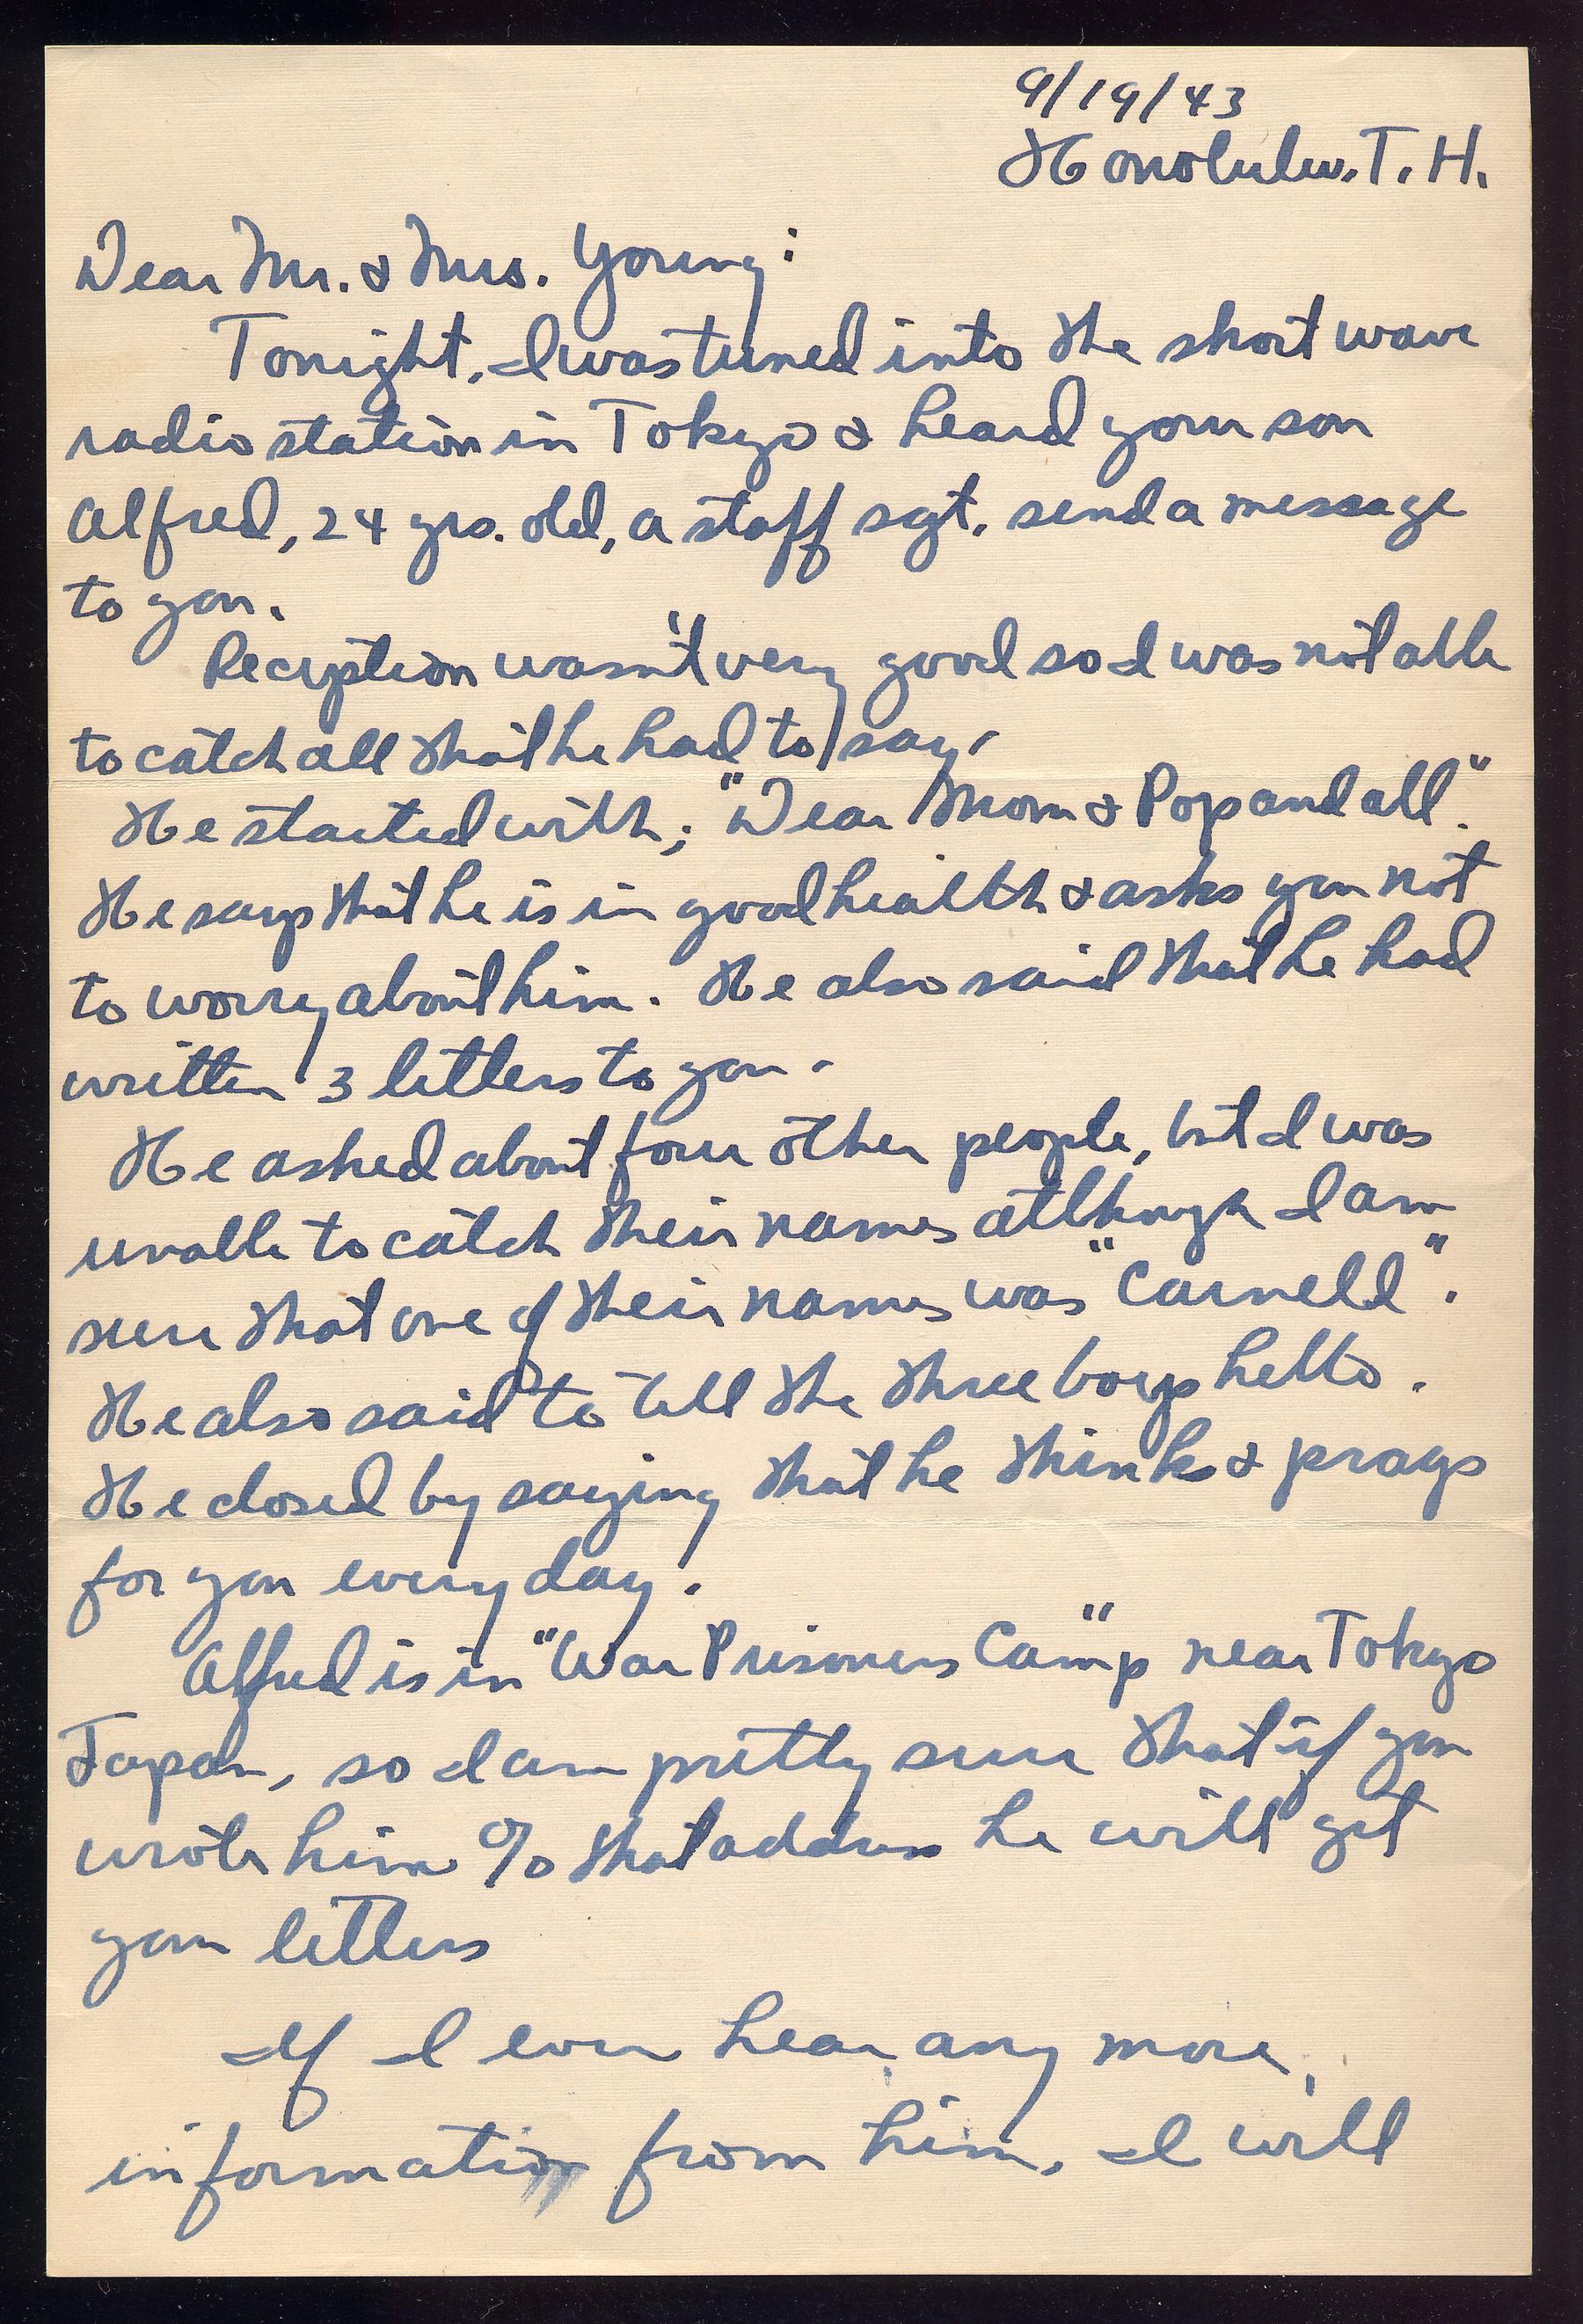 9/19/43
Honolulu. T. H.
Dear Mr. & Mrs. Young:
Tonight, I was tuned into the short wave
radio station in Tokyo & heard your son
Alfred, 24 yrs. old, a staff sgt. send a message
to you.
Reception wasn't very good so I was not able
to catch all that he had to say.
He started with; "Dear Mom & Pop and all".
He says that he is in good health & asks you not
to worry about him. He also said that he had
written 3 letters to you.
He asked about four other people, but I was
unable to catch their names although I am
sure that one of their names was "Carnell".
He also said to tell the three boys hello.
He closed by saying that he thinks & prays
for you every day.
Alfred is in "War Prisoners Camp" near Tokyo
Japan, so I am pretty sure that if you
wrote him % that address he will get
your letters
If I ever hear any more
information from him, I will